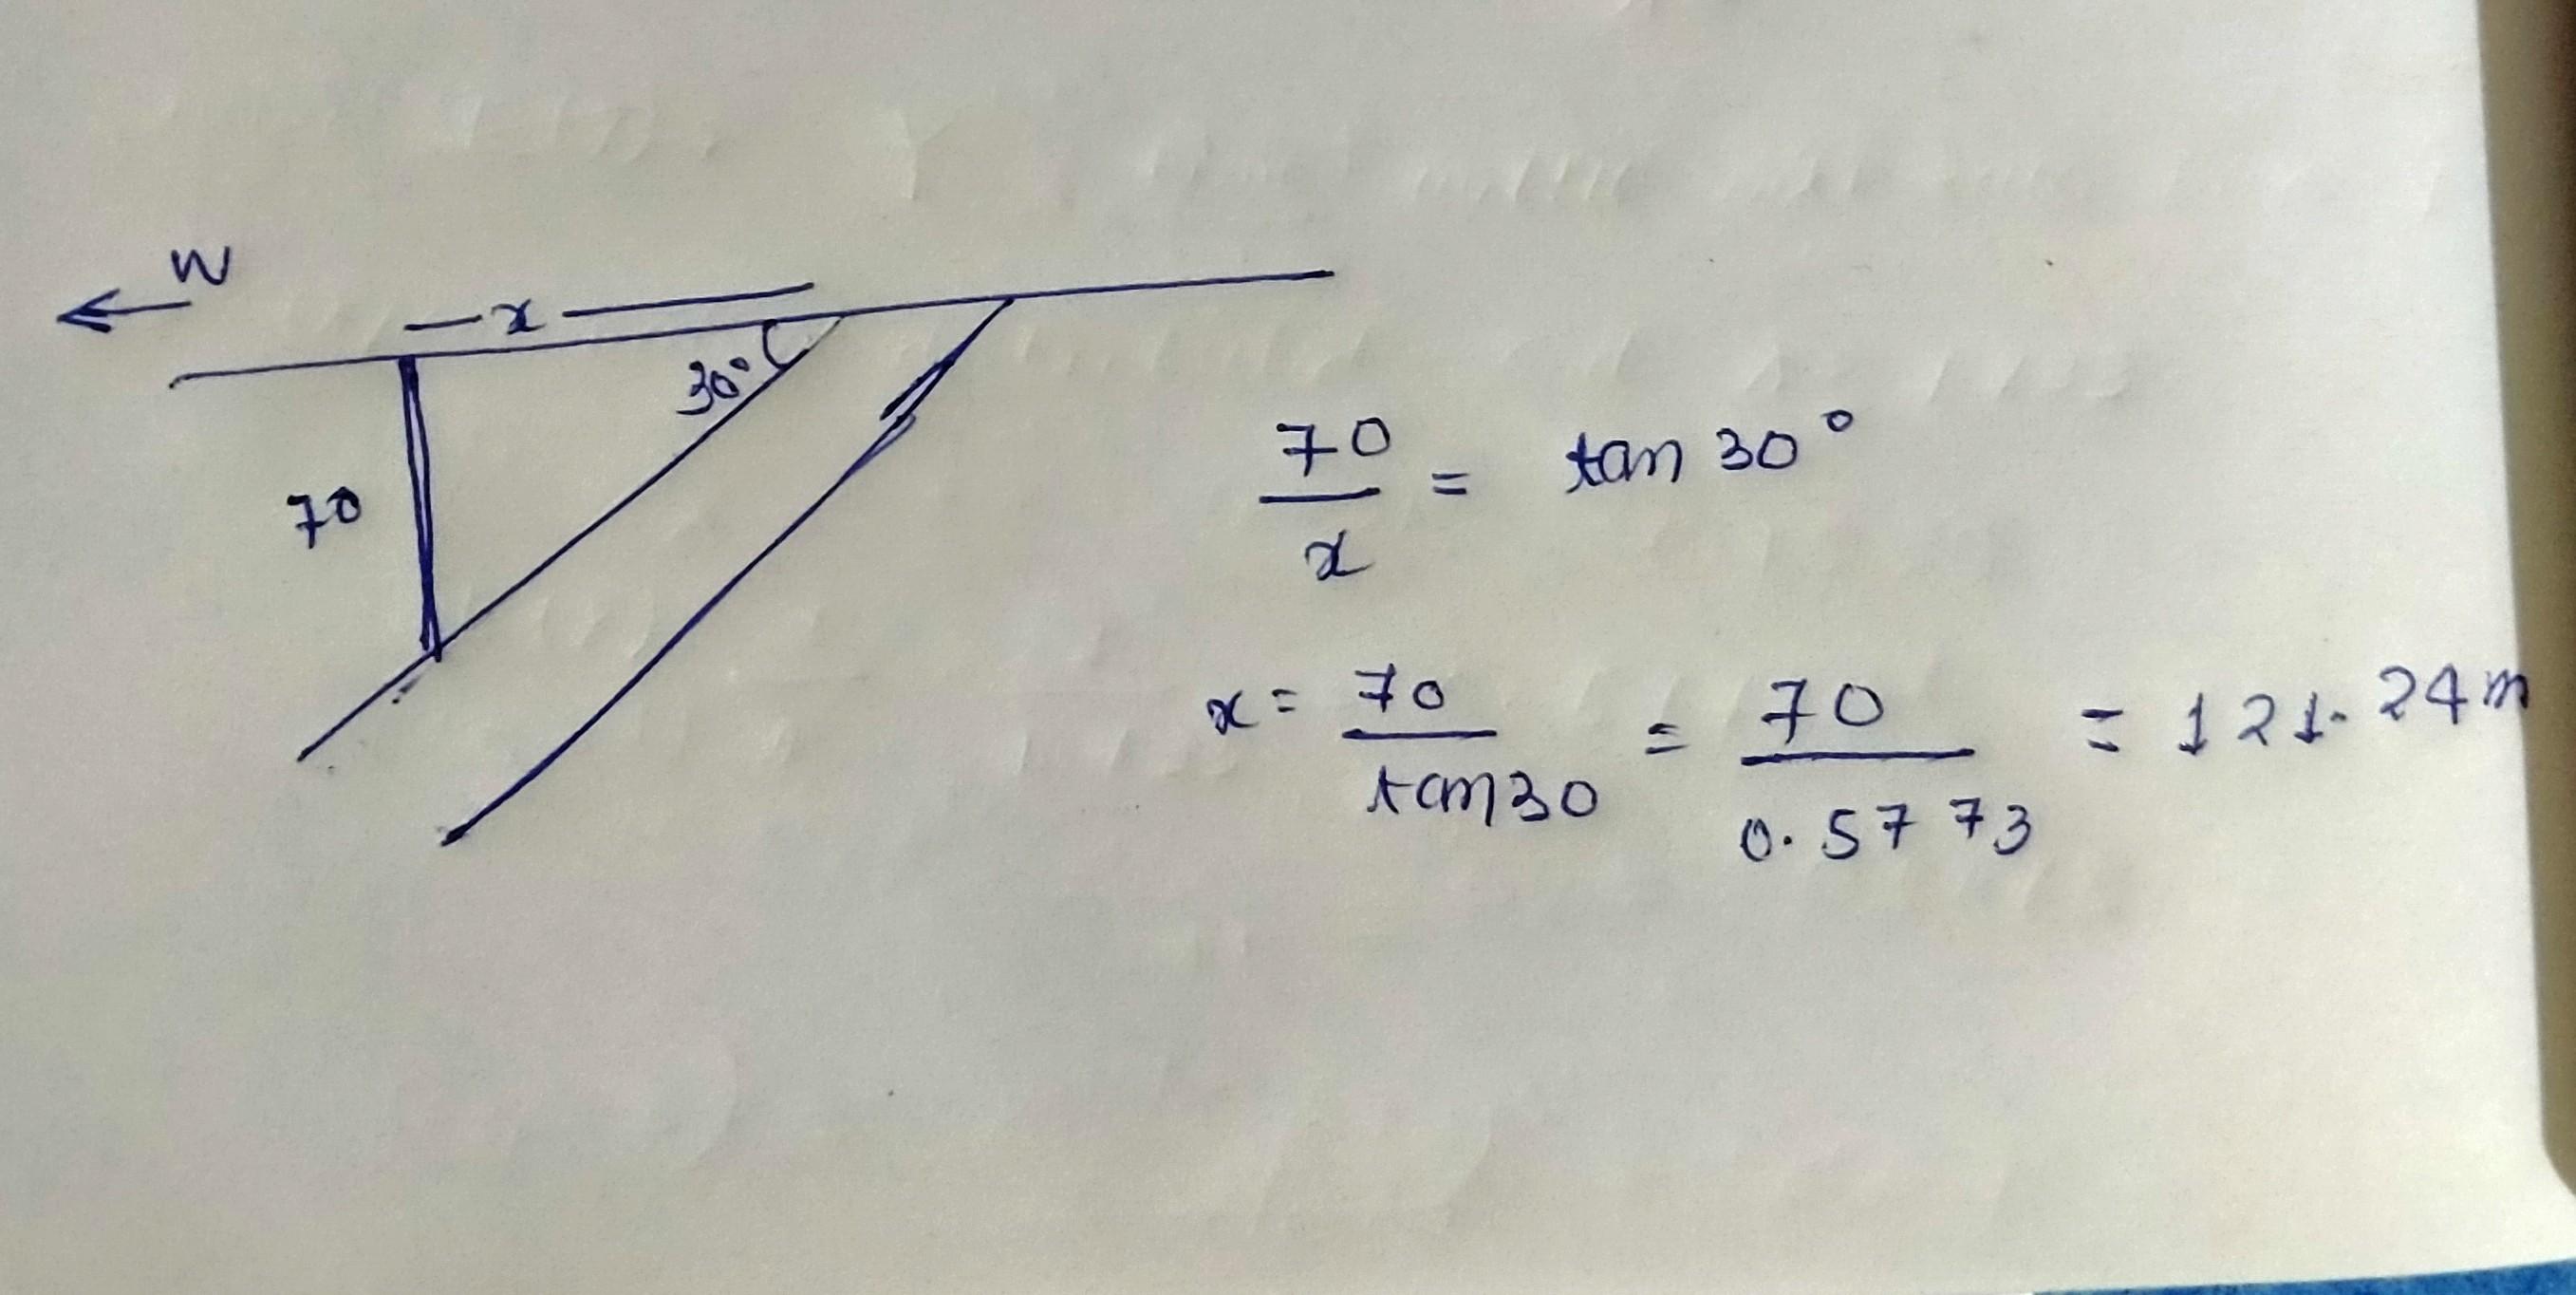 W
x
30°
70
70/x = tan 30°
x = 70/tan30 = 70/0.5773 = 121.24m